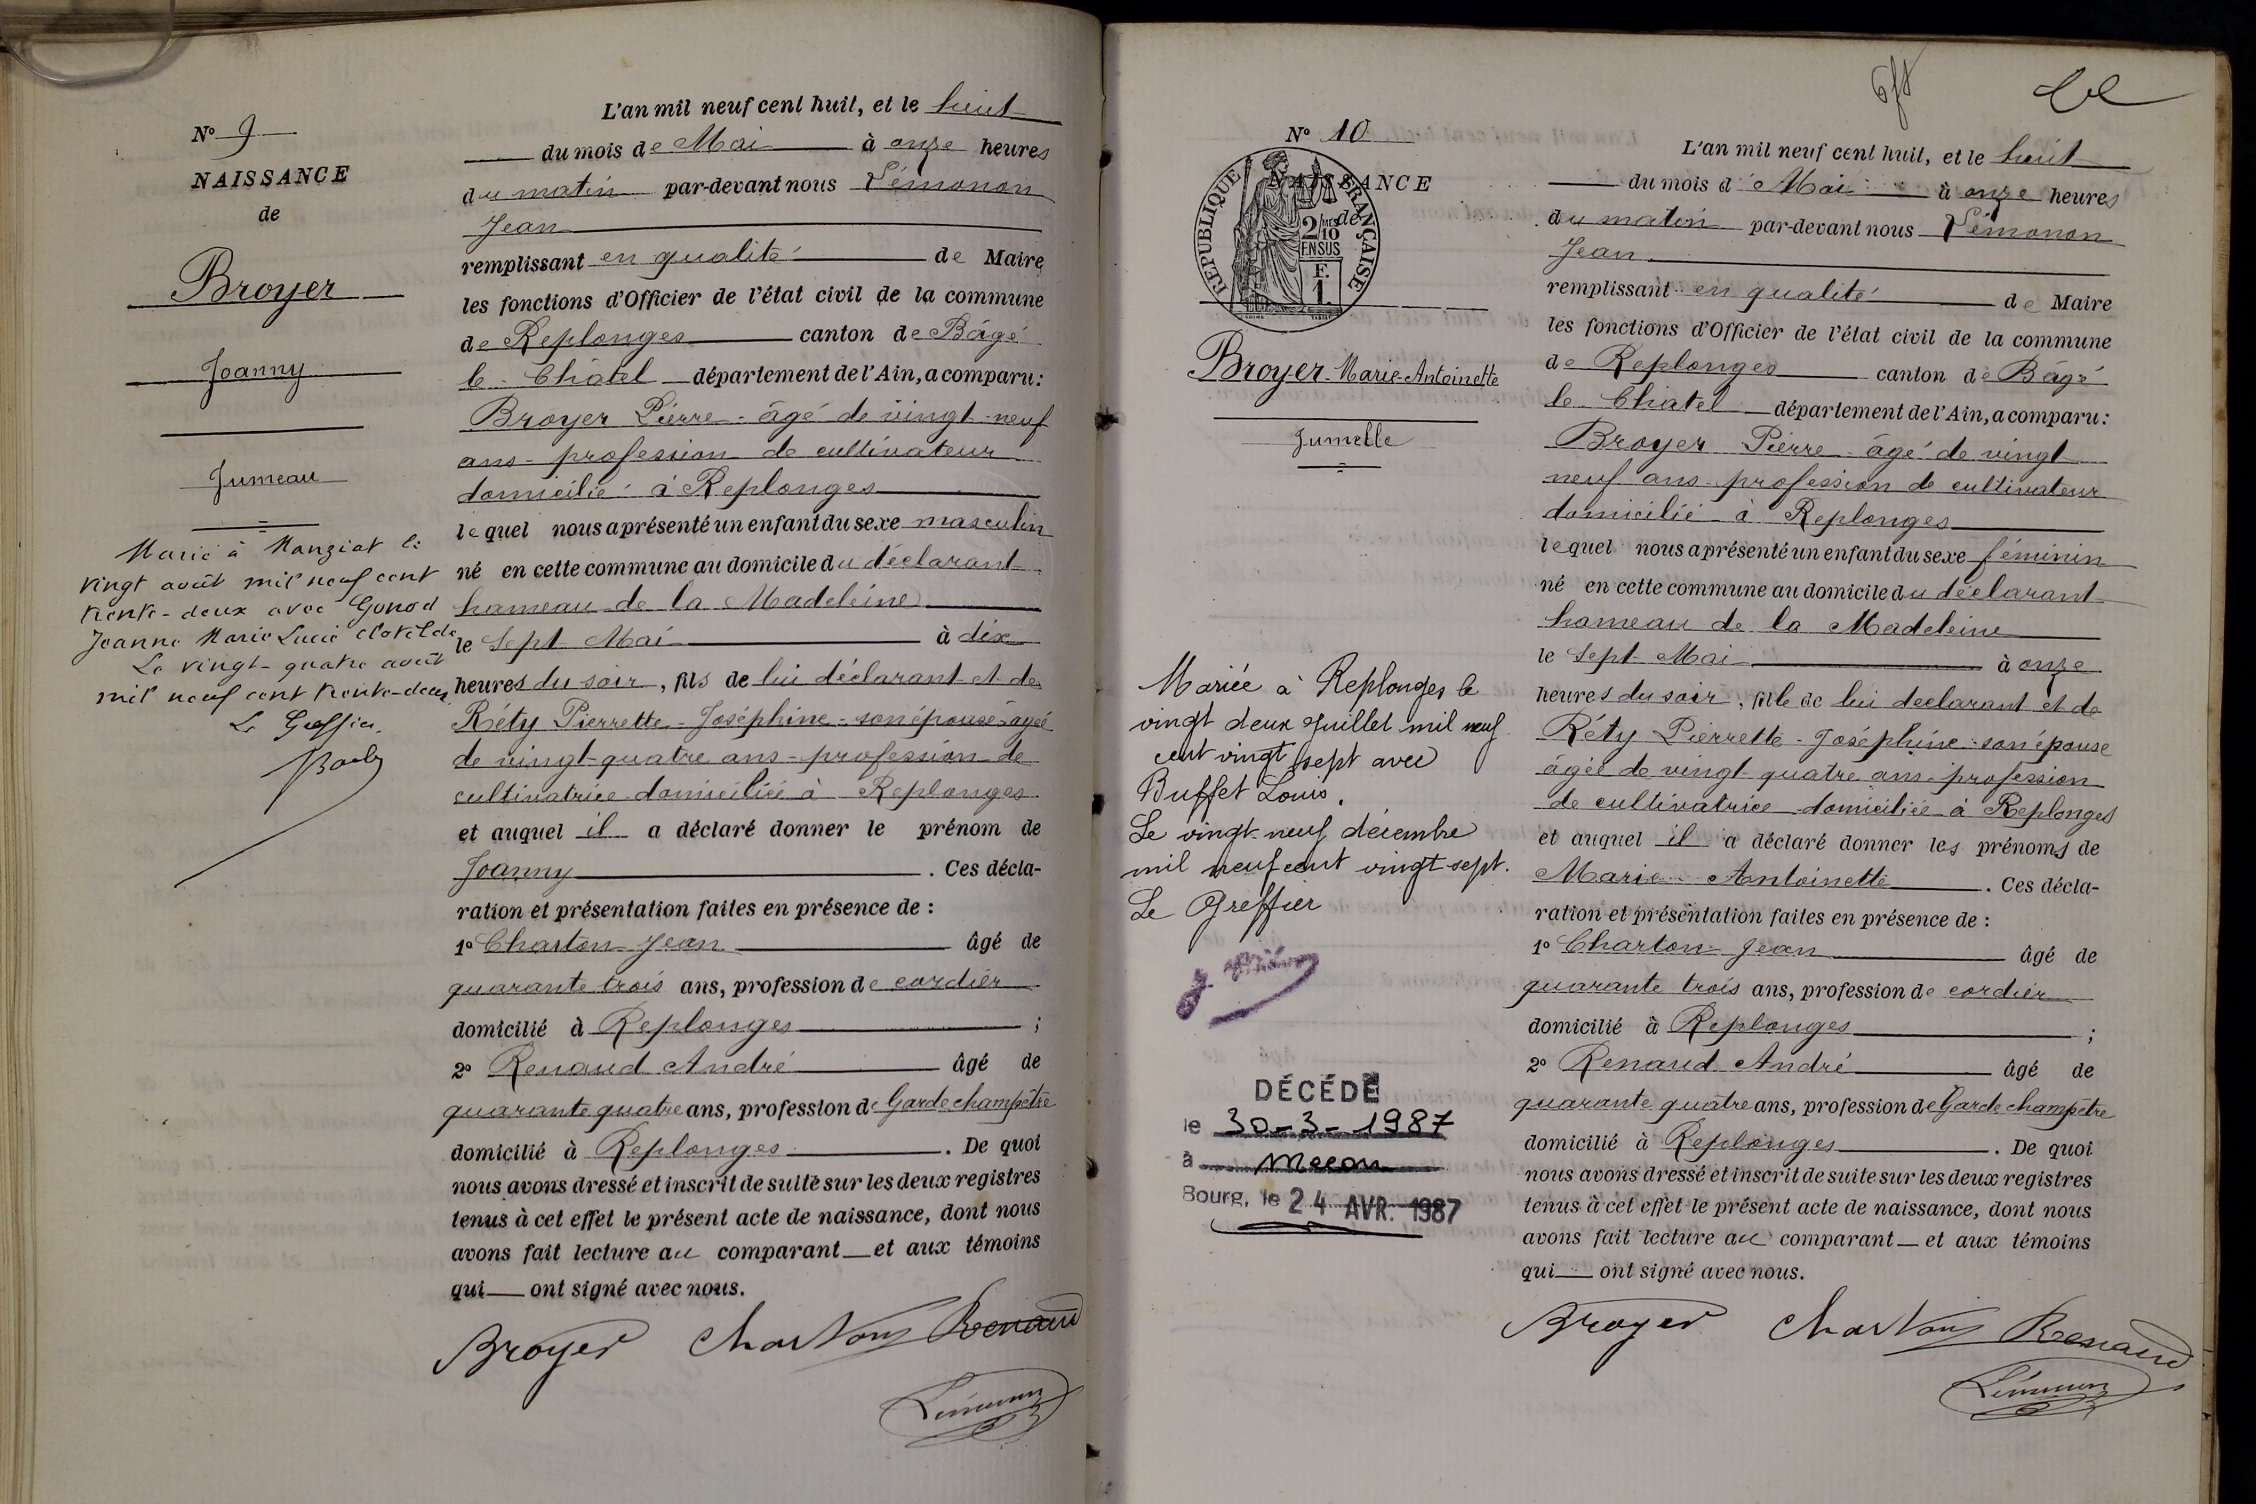 N° 9
NAISSANCE
de
Broyer
Joanny
Jumeau
Marié à Manziat le
vingt août mil neuf cent
trente-deux avec Gonod
Jeanne Marie Lucie Clotilde
Le vingt-quatre août
mil neuf cent trente-deux
Le Greffier
L'an mil neuf cent huit, et le huit
du mois de Mai à onze heures
du matin par-devant nous Lémonon
Jean
remplissant en qualité de Maire
les fonctions d'Officier de l'état civil de la commune
de Replonges canton de Bâgé
le Châtel département de l'Ain, a comparu:
Broyer Pierre âgé de vingt-neuf
ans profession de cultivateur
domicilié à Replonges
lequel nous a présenté un enfant du sexe masculin
né en cette commune au domicile du déclarant
hameau de la Madeleine
le sept Mai à dix
heures du soir, fils de lui déclarant et de
Réty Pierrette-Joséphine son épouse âgée
de vingt-quatre ans profession de
cultivatrice domiciliée à Replonges
et auquel il a déclaré donner le prénom de
Joanny. Ces décla-
ration et présentation faites en présence de :
1° Charton Jean âgé de
quarante trois ans, profession de cordier
domicilié à Replonges ;
2° Renaud André âgé de
quarante quatre ans, profession de Garde champêtre
domicilié à Replonges. De quoi
nous avons dressé et inscrit de suite sur les deux registres
tenus à cet effet le présent acte de naissance, dont nous
avons fait lecture au comparant et aux témoins
qui ont signé avec nous.
Broyer Charton Renaud
Lémonon
N° 10
NAISSANCE
de
REPUBLIQUE FRANÇAISE
2/10
EN SUS
F.
1.
Broyer Marie-Antoinette
Jumelle
Mariée à Replonges le
vingt deux Juillet mil neuf
cent vingt sept avec
Buffet Louis.
Le vingt-neuf décembre
mil neuf cent vingt sept.
Le Greffier
DÉCÉDÉ
le 30-3-1987
à Macon
Bourg, le 24 AVR. 1987
L'an mil neuf cent huit, et le huit
du mois d Mai à onze heures
du matin par-devant nous Lémonon
Jean
remplissant en qualité de Maire
les fonctions d'Officier de l'état civil de la commune
de Replonges canton de Bâgé
le Châtel département de l'Ain, a comparu:
Broyer Pierre âgé de vingt
neuf ans profession de cultivateur
domicilié à Replonges
lequel nous a présenté un enfant du sexe féminin
né en cette commune au domicile du déclarant
hameau de la Madeleine
le sept Mai à onze
heures du soir, fille de lui déclarant et de
Réty Pierrette-Joséphine son épouse
âgée de vingt-quatre ans profession
de cultivatrice domiciliée à Replonges
et auquel il a déclaré donner les prénoms de
Marie Antoinette. Ces décla-
ration et présentation faites en présence de :
1° Charton Jean âgé de
quarante trois ans, profession de cordier
domicilié à Replonges ;
2° Renaud André âgé de
quarante quatre ans, profession de Garde champêtre
domicilié à Replonges. De quoi
nous avons dressé et inscrit de suite sur les deux registres
tenus à cet effet le présent acte de naissance, dont nous
avons fait lecture au comparant et aux témoins
qui ont signé avec nous.
Broyer Charton Renaud
Lémonon